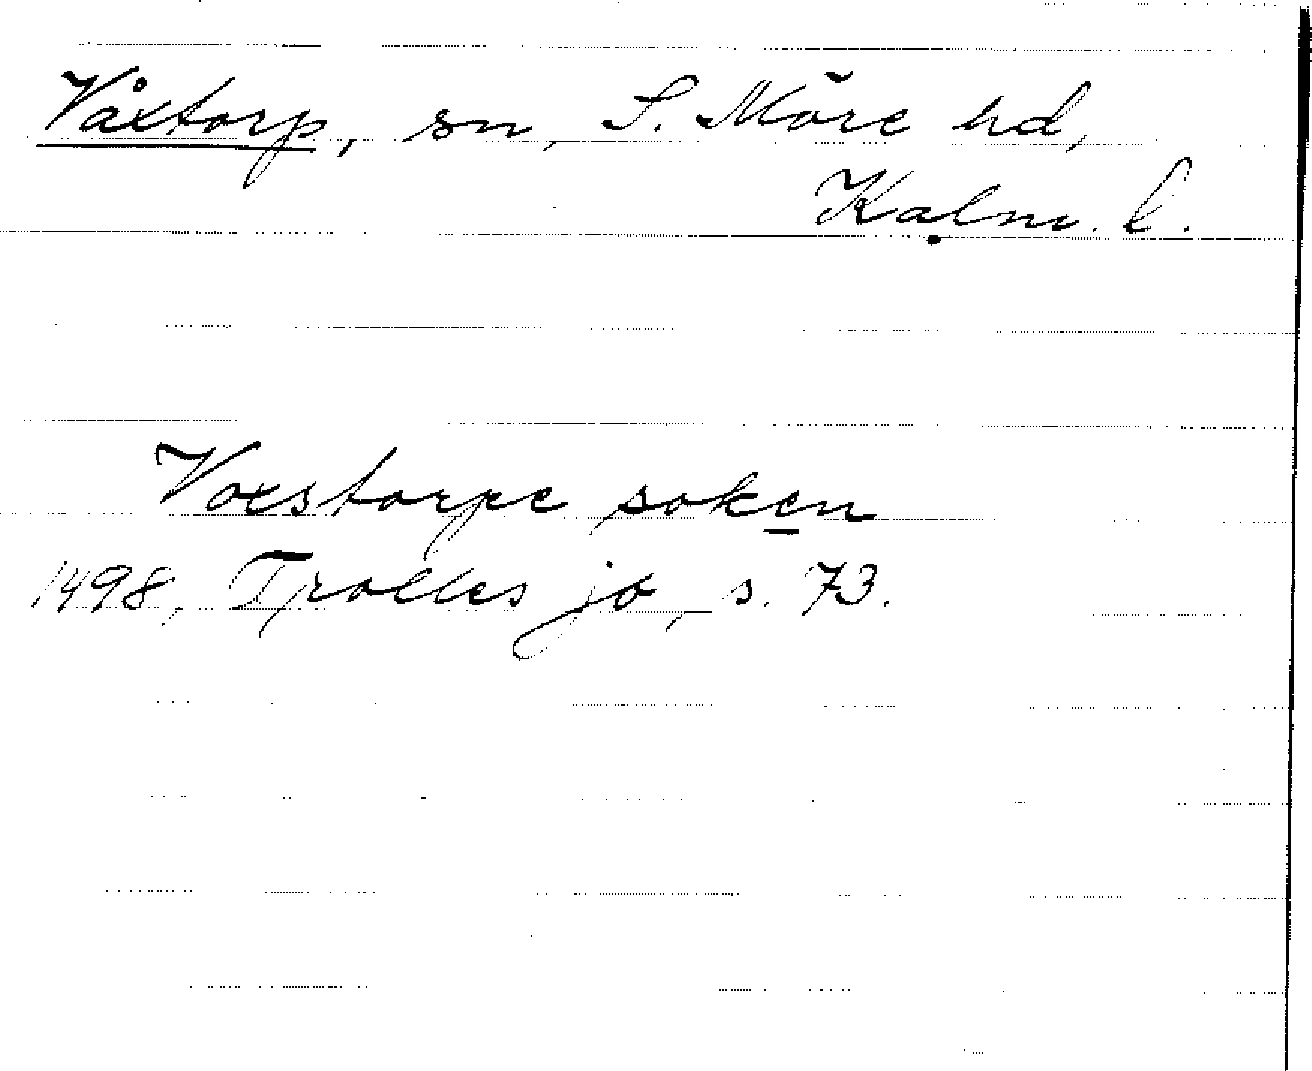 Våxtorp, sn, S. Möre hd,
Kalm. l.
Voxstorpe soken
1498, Trolles jo, s. 73.